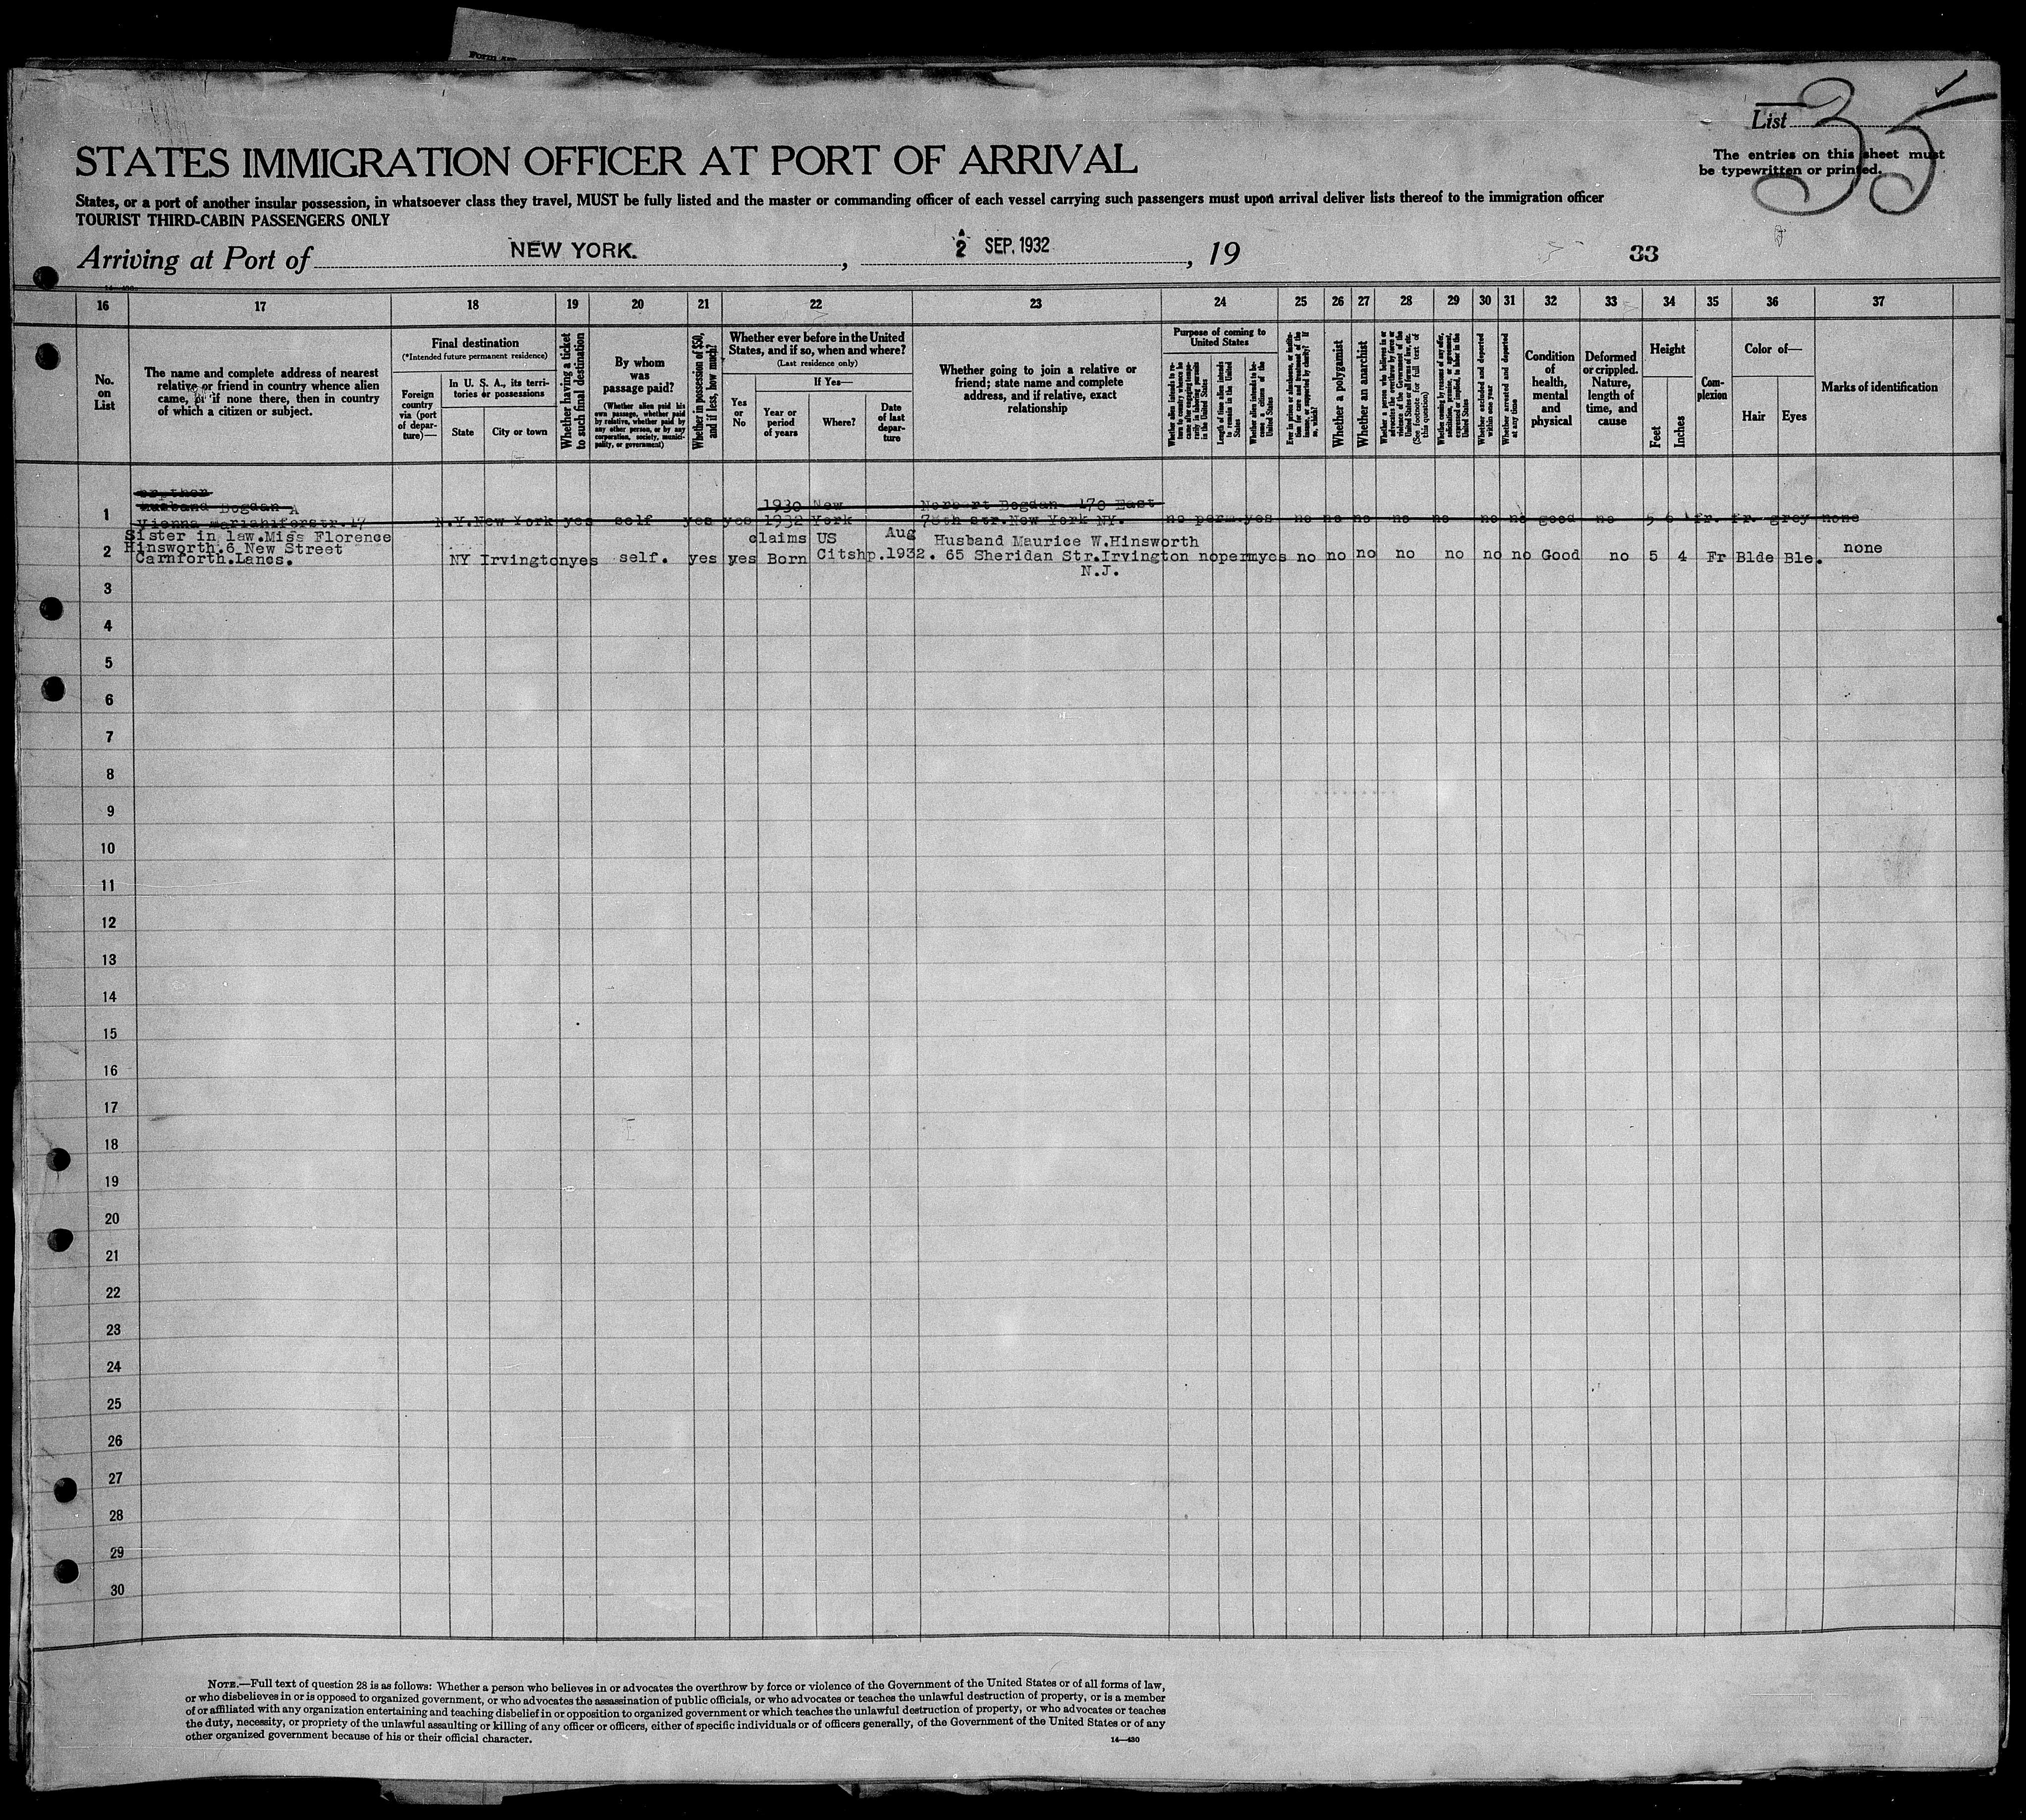 Form
List 35
STATES IMMIGRATION OFFICER AT PORT OF ARRIVAL
The entries on this sheet must
be typewritten or printed.
States, or a port of another insular possession, in whatsoever class they travel, MUST be fully listed and the master or commanding officer of each vessel carrying such passengers must upon arrival deliver lists thereof to the immigration officer
TOURIST THIRD-CABIN PASSENGERS ONLY
Arriving at Port of NEW YORK. , 2 SEP. 1932 , 19
33
16 17 18 19 20 21 22 23 24 25 26 27 28 29 30 31 32 33 34 35 36 37
No.
on
List
The name and complete address of nearest
relative or friend in country whence alien
came, or if none there, then in country
of which a citizen or subject.
Final destination
(*Intended future permanent residence)
Foreign
country
via (port
of depar-
ture)—
In U. S. A., its terri-
tories or possessions
State
City or town
Whether having a ticket
to such final destination
By whom
was
passage paid?
(Whether alien paid his
own passage, whether paid
by relative, whether paid by
any other person, or by any
corporation, society, munici-
pality, or government)
Whether in possession of $50,
and if less, how much?
Whether ever before in the United
States, and if so, when and where?
(Last residence only)
Yes
or
No
If Yes—
Year or
period
of years
Where?
Date
of last
depar-
ture
Whether going to join a relative or
friend; state name and complete
address, and if relative, exact
relationship
Purpose of coming to
United States
Length of time alien intends
to remain in the United
States
Whether alien intends to be-
come a citizen of the
United States
Whether a polygamist
Whether an anarchist
Whether excluded and deported
within one year
Whether arrested and deported
at any time
Condition
of
health,
mental
and
physical
Deformed
or crippled.
Nature,
length of
time, and
cause
Height
Feet
Inches
Com-
plexion
Color of—
Hair
Eyes
Marks of identification
husband Bogdan A 1930 New Norbert Bogdan 170 East
1 Vienna Mariahiferstr.17 N.Y. New York yes self yes yes 1932 York 78th str.New York NY. no perm.yes no no no no no no no good no 5 6 fr. fr. grey none
Sister in law.Miss Florence claims US Aug Husband Maurice W.Hinsworth
2 Hinsworth.6 New Street NY Irvington yes self. yes yes Born Citshp. 1932. 65 Sheridan Str.Irvington no perm yes no no no no no no no Good no 5 4 Fr Blde Ble. none
Carnforth.Lancs. N.J.
3
4
5
6
7
8
9
10
11
12
13
14
15
16
17
18
19
20
21
22
23
24
25
26
27
28
29
30
NOTE.—Full text of question 28 is as follows: Whether a person who believes in or advocates the overthrow by force or violence of the Government of the United States or of all forms of law,
or who disbelieves in or is opposed to organized government, or who advocates the assassination of public officials, or who advocates or teaches the unlawful destruction of property, or is a member
of or affiliated with any organization entertaining and teaching disbelief in or opposition to organized government or which teaches the unlawful destruction of property, or who advocates or teaches
the duty, necessity, or propriety of the unlawful assaulting or killing of any officer or officers, either of specific individuals or of officers generally, of the Government of the United States or of any
other organized government because of his or their official character.
14—430